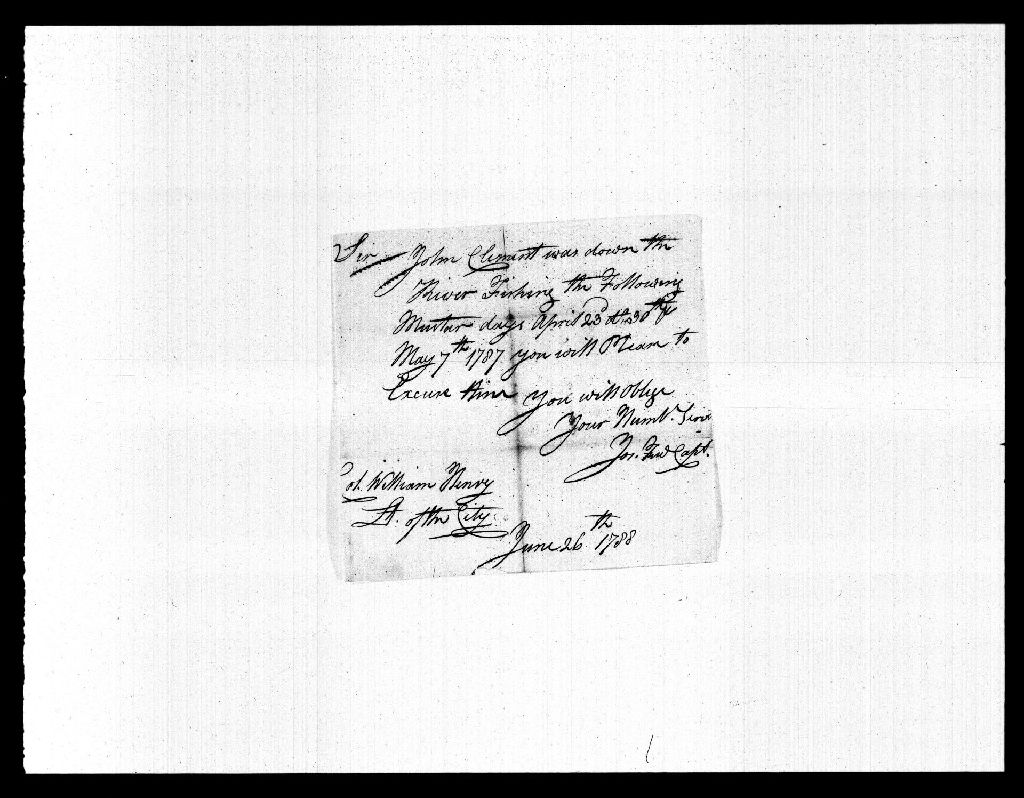 Sir John Clement was down the
River Fishing the Following
Muster days April 23d th 30th &
May 7th 1787 you will Pleas to
Excuse him you will oblige
Your Humbl. Serv
Jos. Capt.
Col. William Henry
Lt. of the City
June 26th 1788